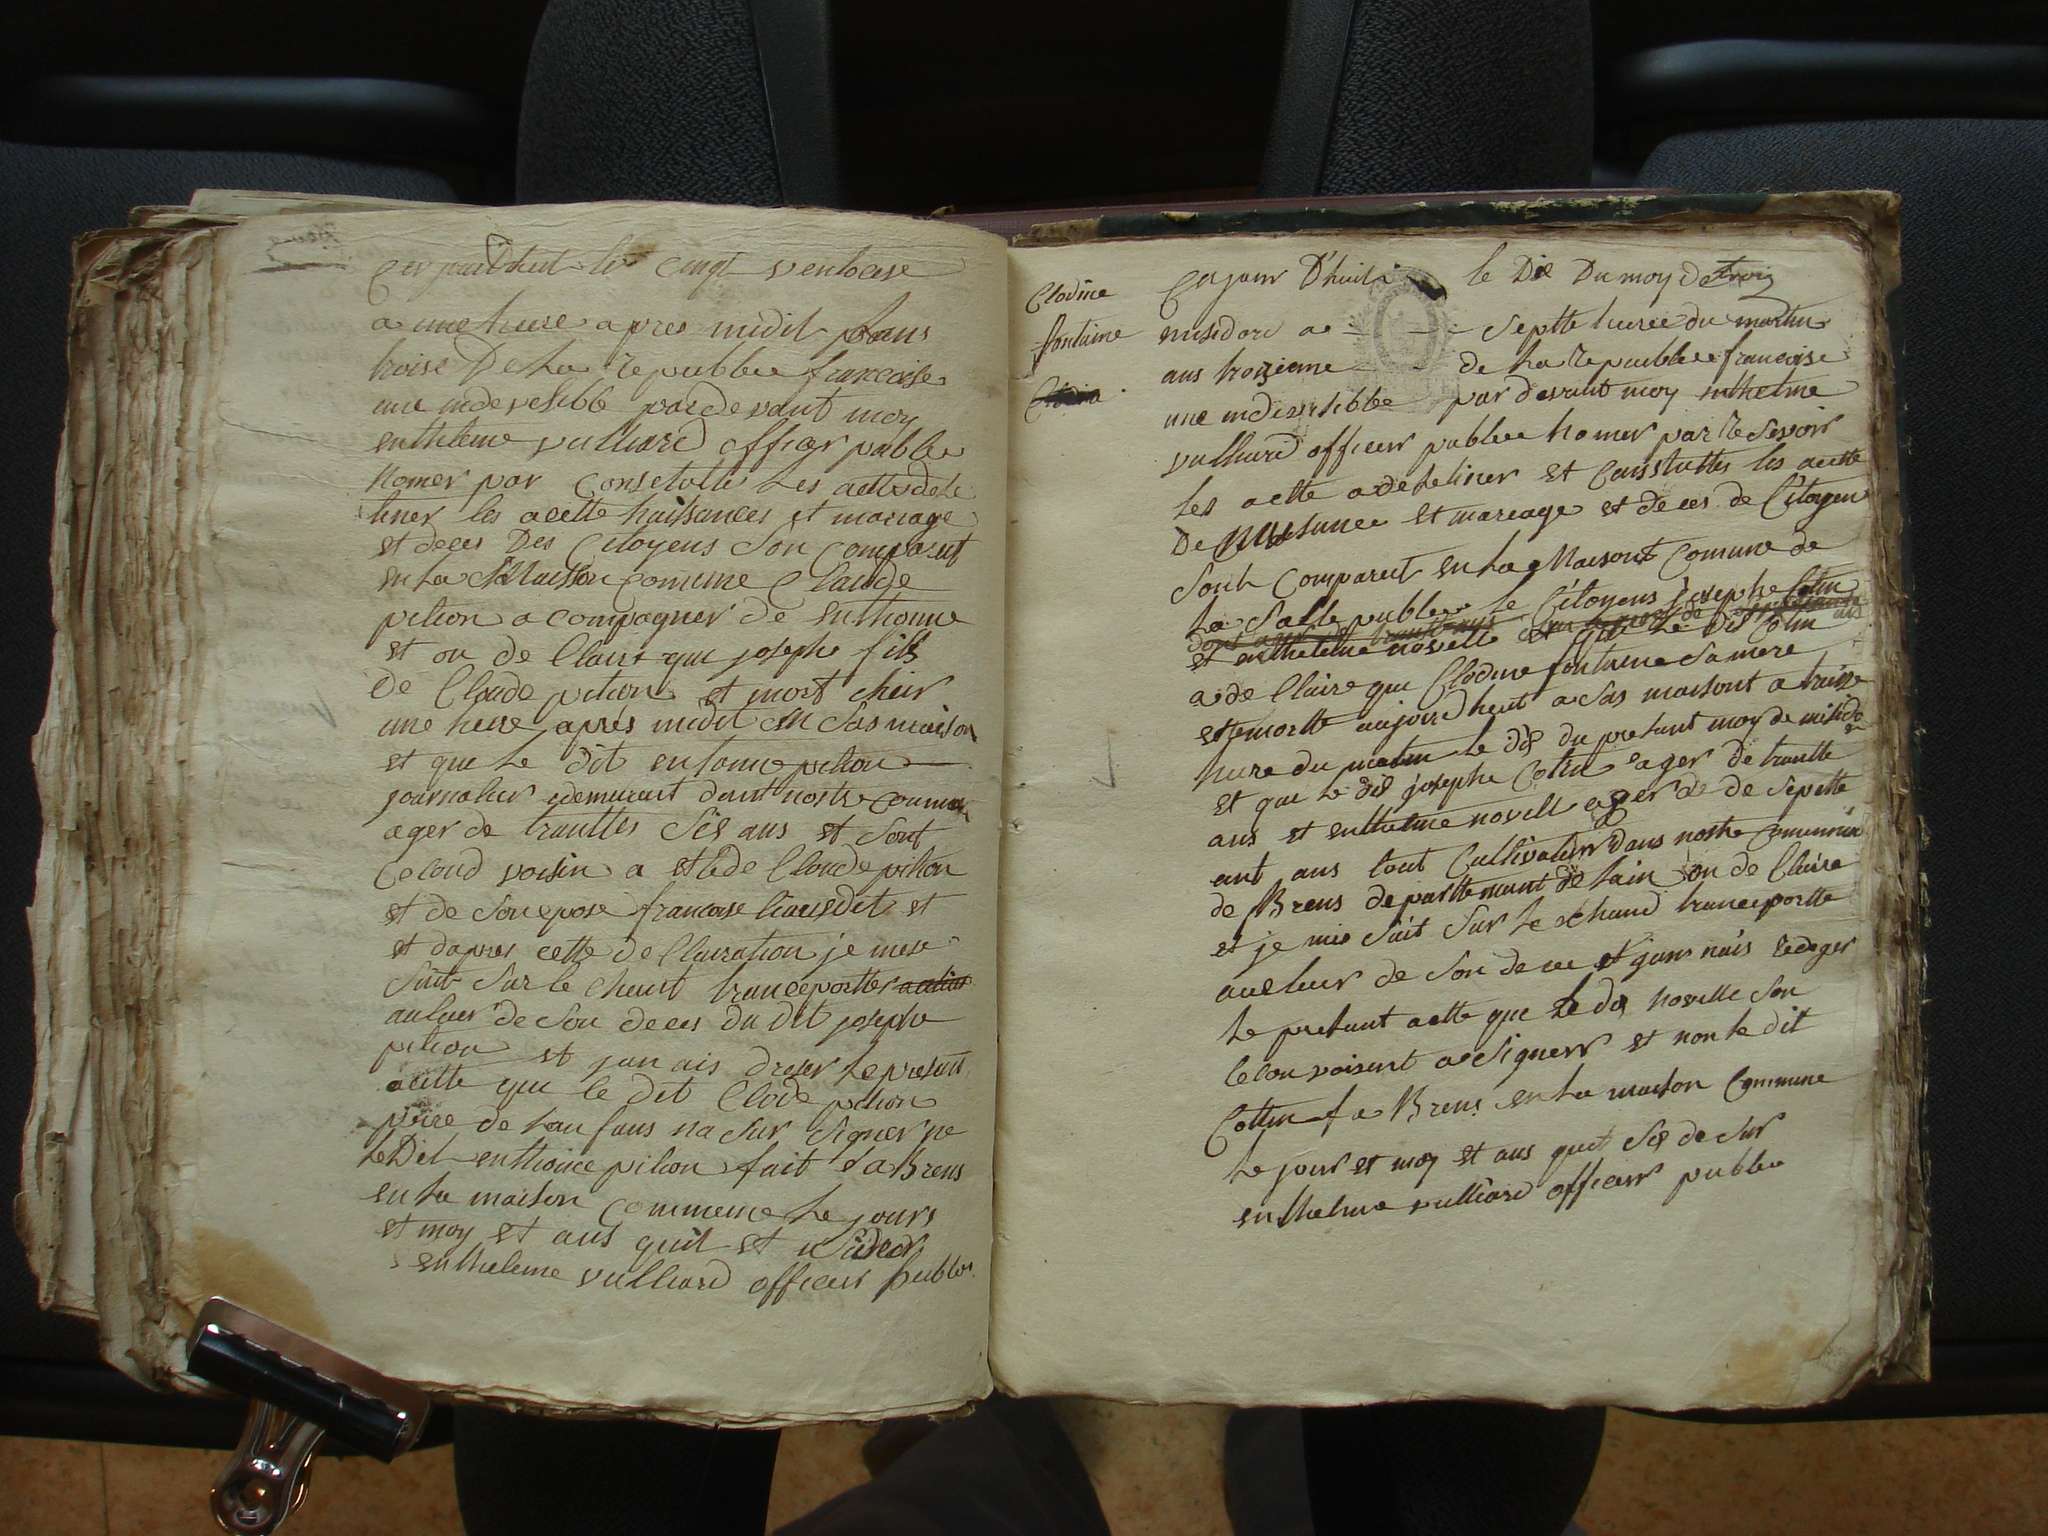 Cejourdhut le vingt ventose
a une heure apres midit l'ans
troise De La republee francaise
une indevesible par devant moy
enthleme vulliard officer publee
Nomer par Consetatte Les actte de
liner les acette naissances et mariage
et deces Des Citoyens Son Comparut
en La Maison comune Claude
pition a compagner de enthome
et on de Claire que josephe fils
de Cloude pition et mort cheir
une heure après midit en Sas maison
et que Le dit entome pition
journalier demurant dant nostre comune
ager de trantte Sis ans et Sont
Cecond voisin a et de Cloude pition
et de Son epose francoise et
et dapres cette de Clairation je mese
Suit Sur le Chant tranceportter
au luer de Son deces du dit josephe
pition et jan ais dreser Le presant
acette que le dit Clode pition
peire de Lanfans na Sur Signer ne
Le Dit enthome pition fait a Brens
en La maison Commune Le jours
et moy et ans quit et
enthelme vulliard officier publee
Clodine
fontaine
Ce jour D'huit le Dis Du moy de
misidore a Septte heuree du mattin
ans troizieme de La republee francoise
une indivisibble par devant moy enthelme
vulliard officier publee Nomer par Resevoir
Les actte a de teliner et Constatter les acette
De Nessance et mareage et deces de Citoyen
Sont Comparut en La Maisont Comune de
La Salle publee Le Citoyens josephe Cotin
et enthelme novelle et que Le dis Cotin
a de Claire que Clodine fontaine Sa mere
ette mortte aujourdheut a Sas maisont a troise
hure du matin Le dis du presant moy de misido
et que Le dis josephe Cotin ager de trantte
ans et enthelme novell ager de de Septte
ant ans tout Cultivateur dans nostre Commune
de Brens departtemant de Lain on de Claire
et je mis Suit Sur Le chand tranceportte
aux luer de Son dece et jans nais redeger
Le presant actte que Le dis novelle Son
Cecon voisint a Signerr et non Le dit
Cottin f a Brens en La maison Commune
Le jour et moy et ans quit Sis de Sur
enthelme vulliard officierr publee